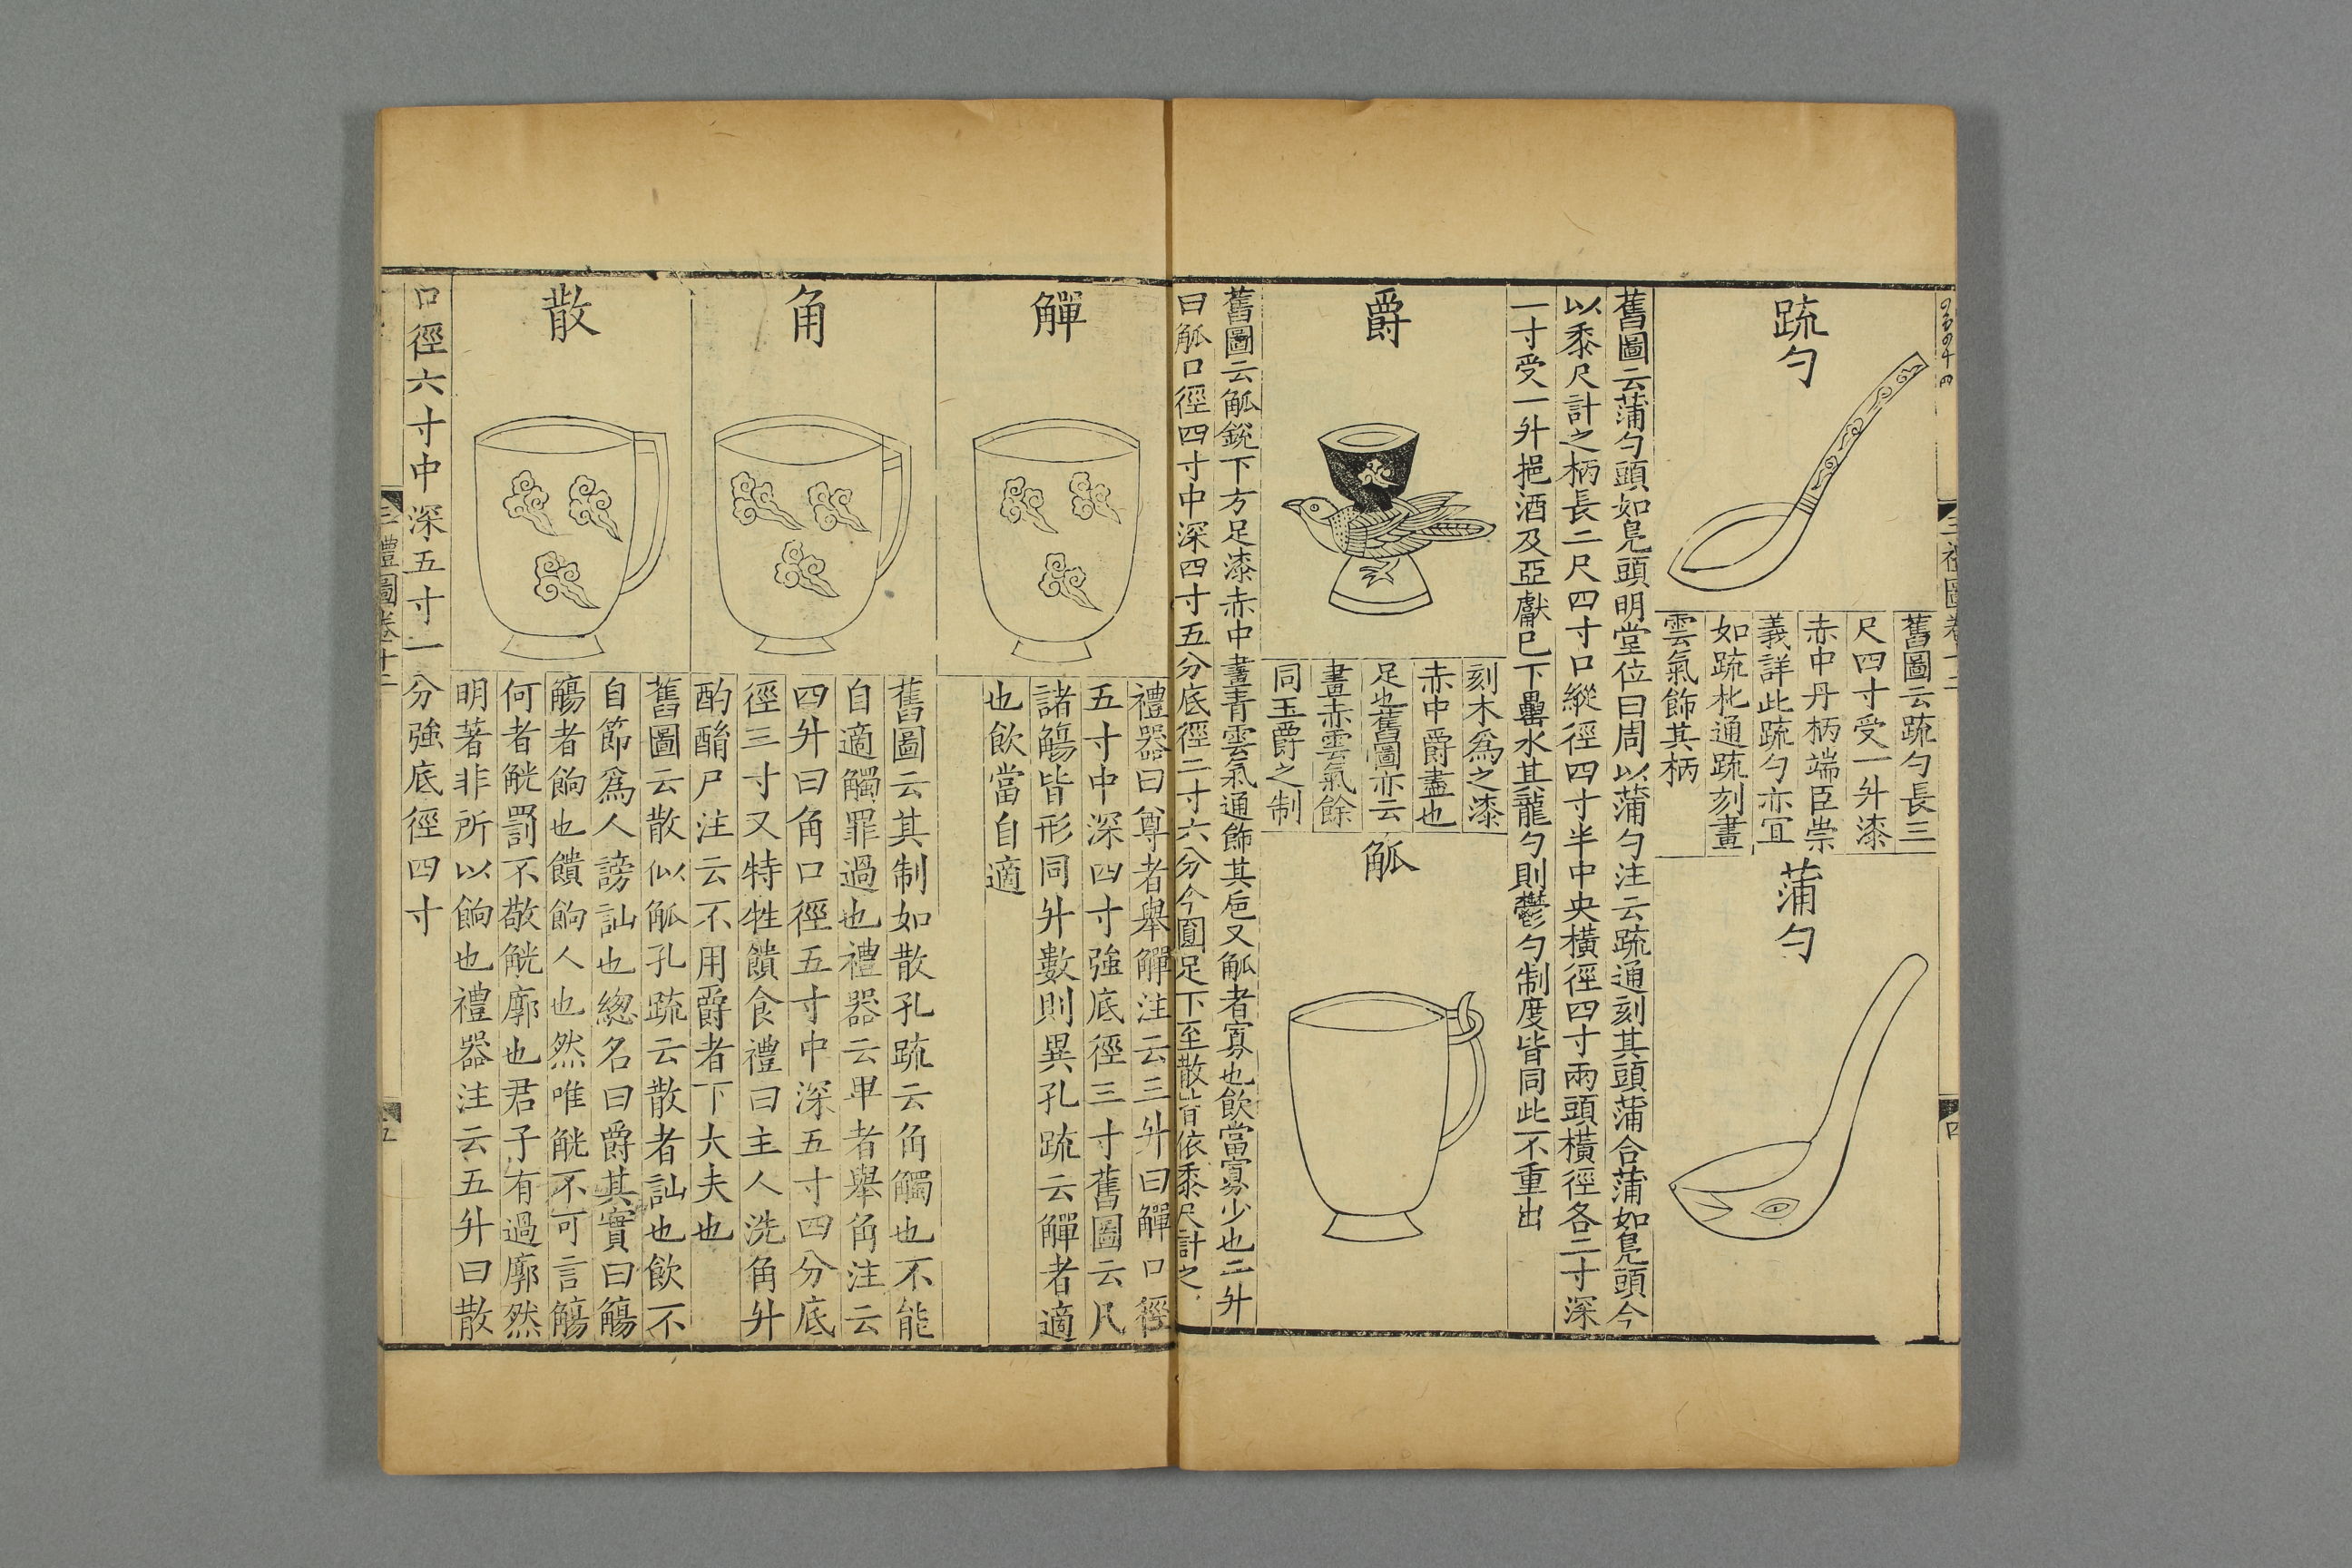 三禮圖卷十二
四
疏勺
舊圖云疏勺長三
尺四寸受一升漆
赤中丹柄端臣崇
義詳此疏勺亦宜
如疏枇通疏刻畫
雲氣飾其柄
蒲勺
舊圖云蒲勺頭如鳬頭明堂位曰周以蒲勺注云疏通刻其頭蒲合蒲如鳬頭今
以黍尺計之柄長二尺四寸口縱徑四寸半中央橫徑四寸兩頭橫徑各二寸深
一寸受一升挹酒及亞獻已下罍水其龍勺則鬱勺制度皆同此不重出
爵
刻木爲之漆
赤中爵盡也
足也舊圖亦云
畫赤雲氣餘
同玉爵之制
觚
舊圖云觚銳下方足漆赤中畫青雲氣通飾其巵又觚者寡也飲當寡少也二升
曰觚口徑四寸中深四寸五分底徑二寸六分今圓足下至散皆依黍尺計之
觶
禮器曰尊者舉觶注云三升曰觶口徑
五寸中深四寸強底徑三寸舊圖云凡
諸觴皆形同升數則異孔疏云觶者適
也飲當自適
角
舊圖云其制如散孔疏云角觸也不能
自適觸罪過也禮器云卑者舉角注云
四升曰角口徑五寸中深五寸四分底
徑三寸又特牲饋食禮曰主人洗角升
酌酳尸注云不用爵者下大夫也
散
舊圖云散似觚孔疏云散者訕也飲不
自節爲人謗訕也緫名曰爵其實曰觴
觴者餉也饋餉人也然唯觥不可言觴
何者觥罰不敬觥廓也君子有過廓然
明著非所以餉也禮器注云五升曰散
口徑六寸中深五寸一分強底徑四寸
三禮圖卷十二
五